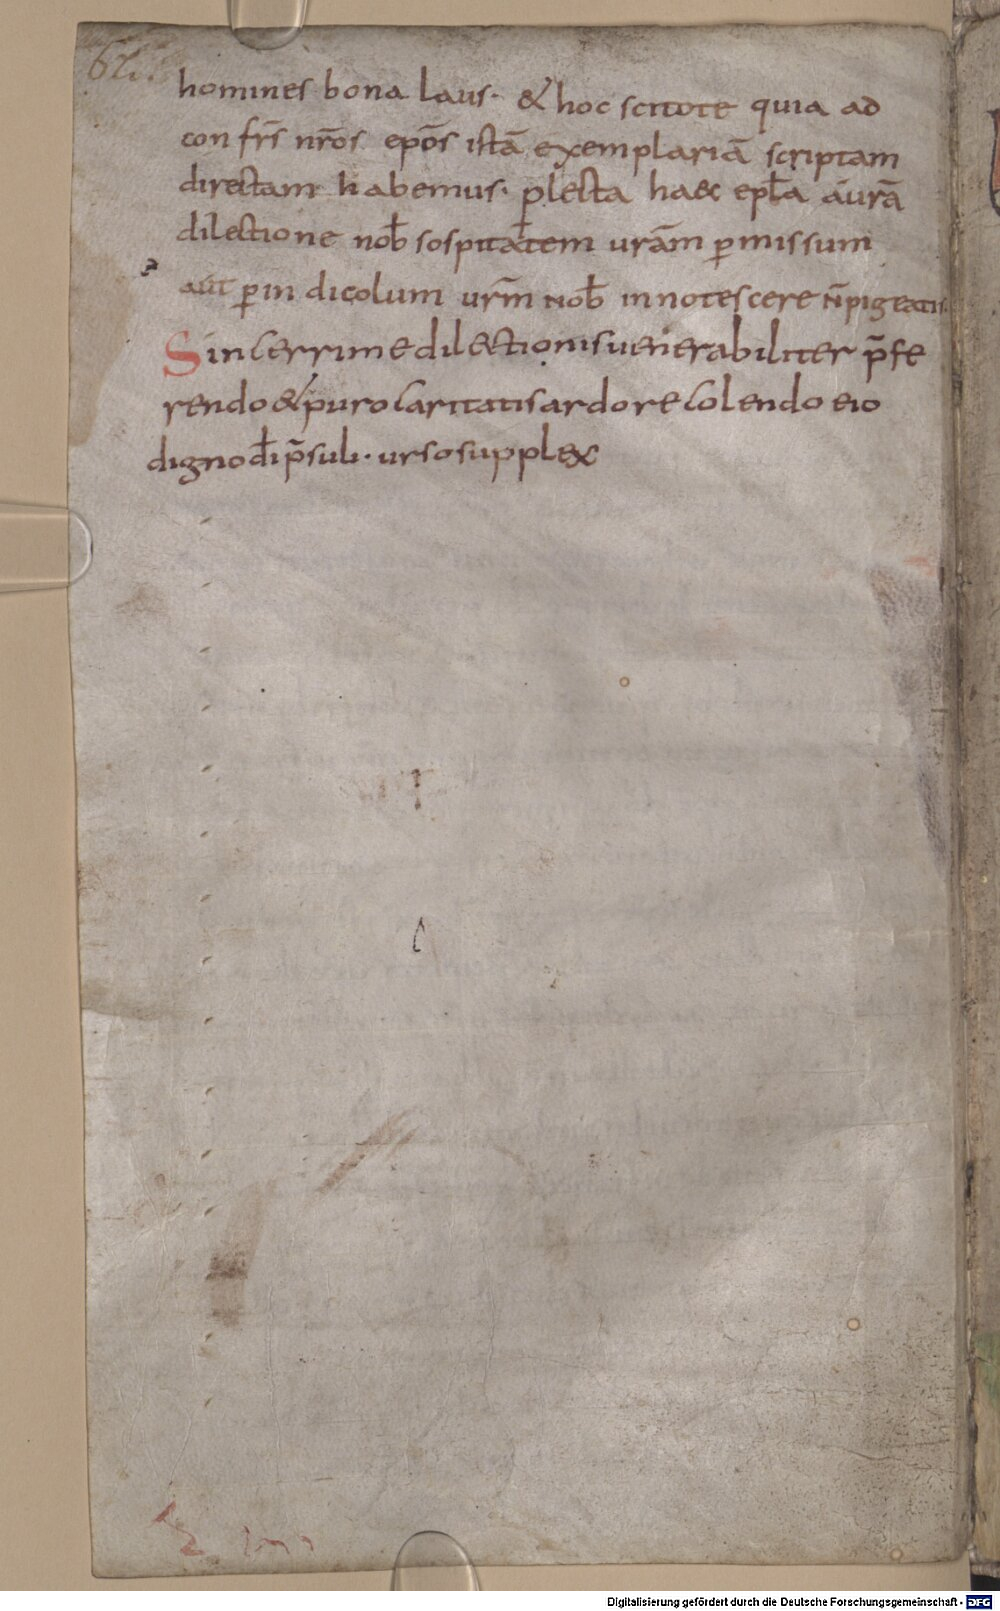 homines bona laus· & hoc scitote quia ad
con frs̄ nr̄os epōs istā exemplariā scriptam
directam habemus· p̲lecta haec epl̄a a ur̄a
dilectione nob̄ sospitatem urām p̲missum
aut p̲ in dicolum ur̄m nob̄ innotescere n̄ pigeatis
Sincerrime dilectionis uenerabiliter p̄fe
rendo & puro caritatis ardore colendo eio
digno dī p̄suli· urso supplex
Digitalisierung gefördert durch die Deutsche Forschungsgemeinschaft - DFG